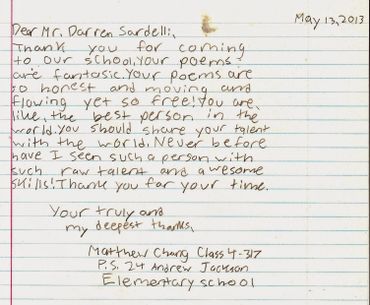 May 13, 2013
Dear Mr. Darren Sardelli,
Thank you for coming
to our school. Your poems
are fantasic. Your poems are
so honest and moving and
flowing yet so free! You are,
like, the best person in the
world. You should share your talent
with the world. Never before
have I seen such a person with
such raw talent and awesome
skills! Thank you for your time.
Your truly and
my deepest thanks,
Matthew Chung Class 4-317
P.S. 24 Andrew Jackson
Elementary school